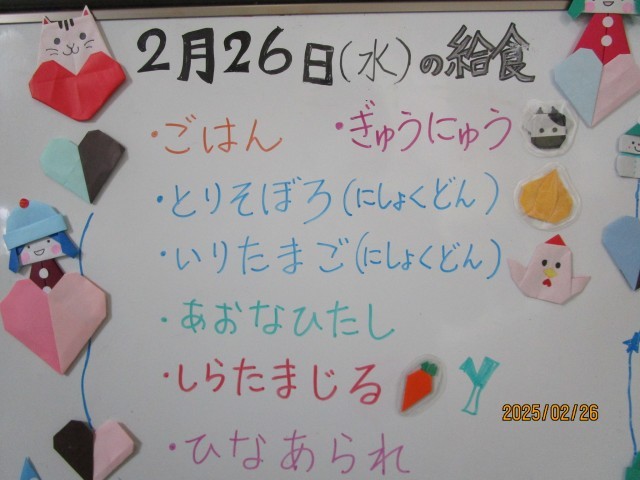 2月26日(水)の給食
・ごはん ・ぎゅうにゅう
・とりそぼろ(にしょくどん)
・いりたまご(にしょくどん)
・あおなひたし
・しらたまじる
・ひなあられ
2025/02/26